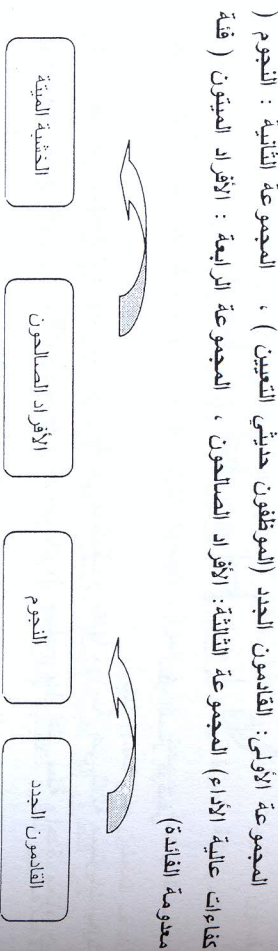 المجموعة الأولى: القادمون الجدد (الموظفون حديثي التعيين ) ، المجموعة الثانية : النجوم (
كفاءات عالية الأداء) المجموعة الثالثة: الأفراد الصالحون ، المجموعة الرابعة : الأفراد الميتون ( فئة
معدومة الفائدة)
القادمون الجدد
النجوم
الأفراد الصالحون
الخشبة الميتة